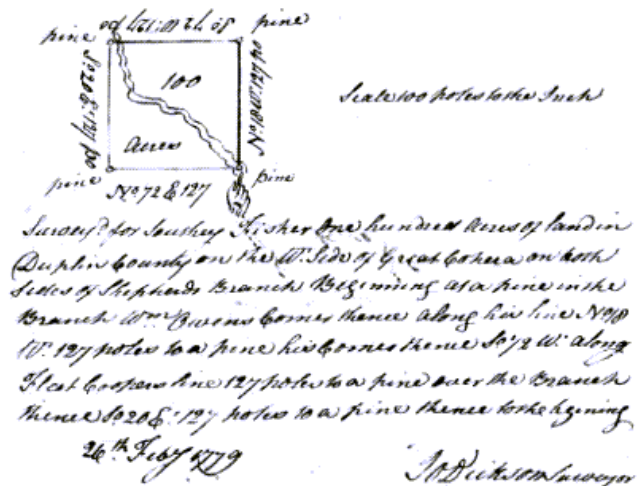 So 72 W. 127 po
pine
pine
So. 20 E. 127 po
100
Acres
No. 18 W. 127 po
Scale 100 poles to the Inch
pine
pine
No 72 E 127
Survey,d for Southey Fisher One hundred Acres of land in
Duplin County on the W. Side of Great Cohera on both
Sides of Shepherds Branch Beginning at a pine in the
Branch Wm Owens Corner thence along his line No 18
W. 127 poles to a pine his Corner thence So 72 W. along
Fleet Coopers line 127 poles to a pine over the Branch
thence So. 20 E. 127 poles to a pine thence to the begining
26th Feby 1779
Jo Dickson Surveyor